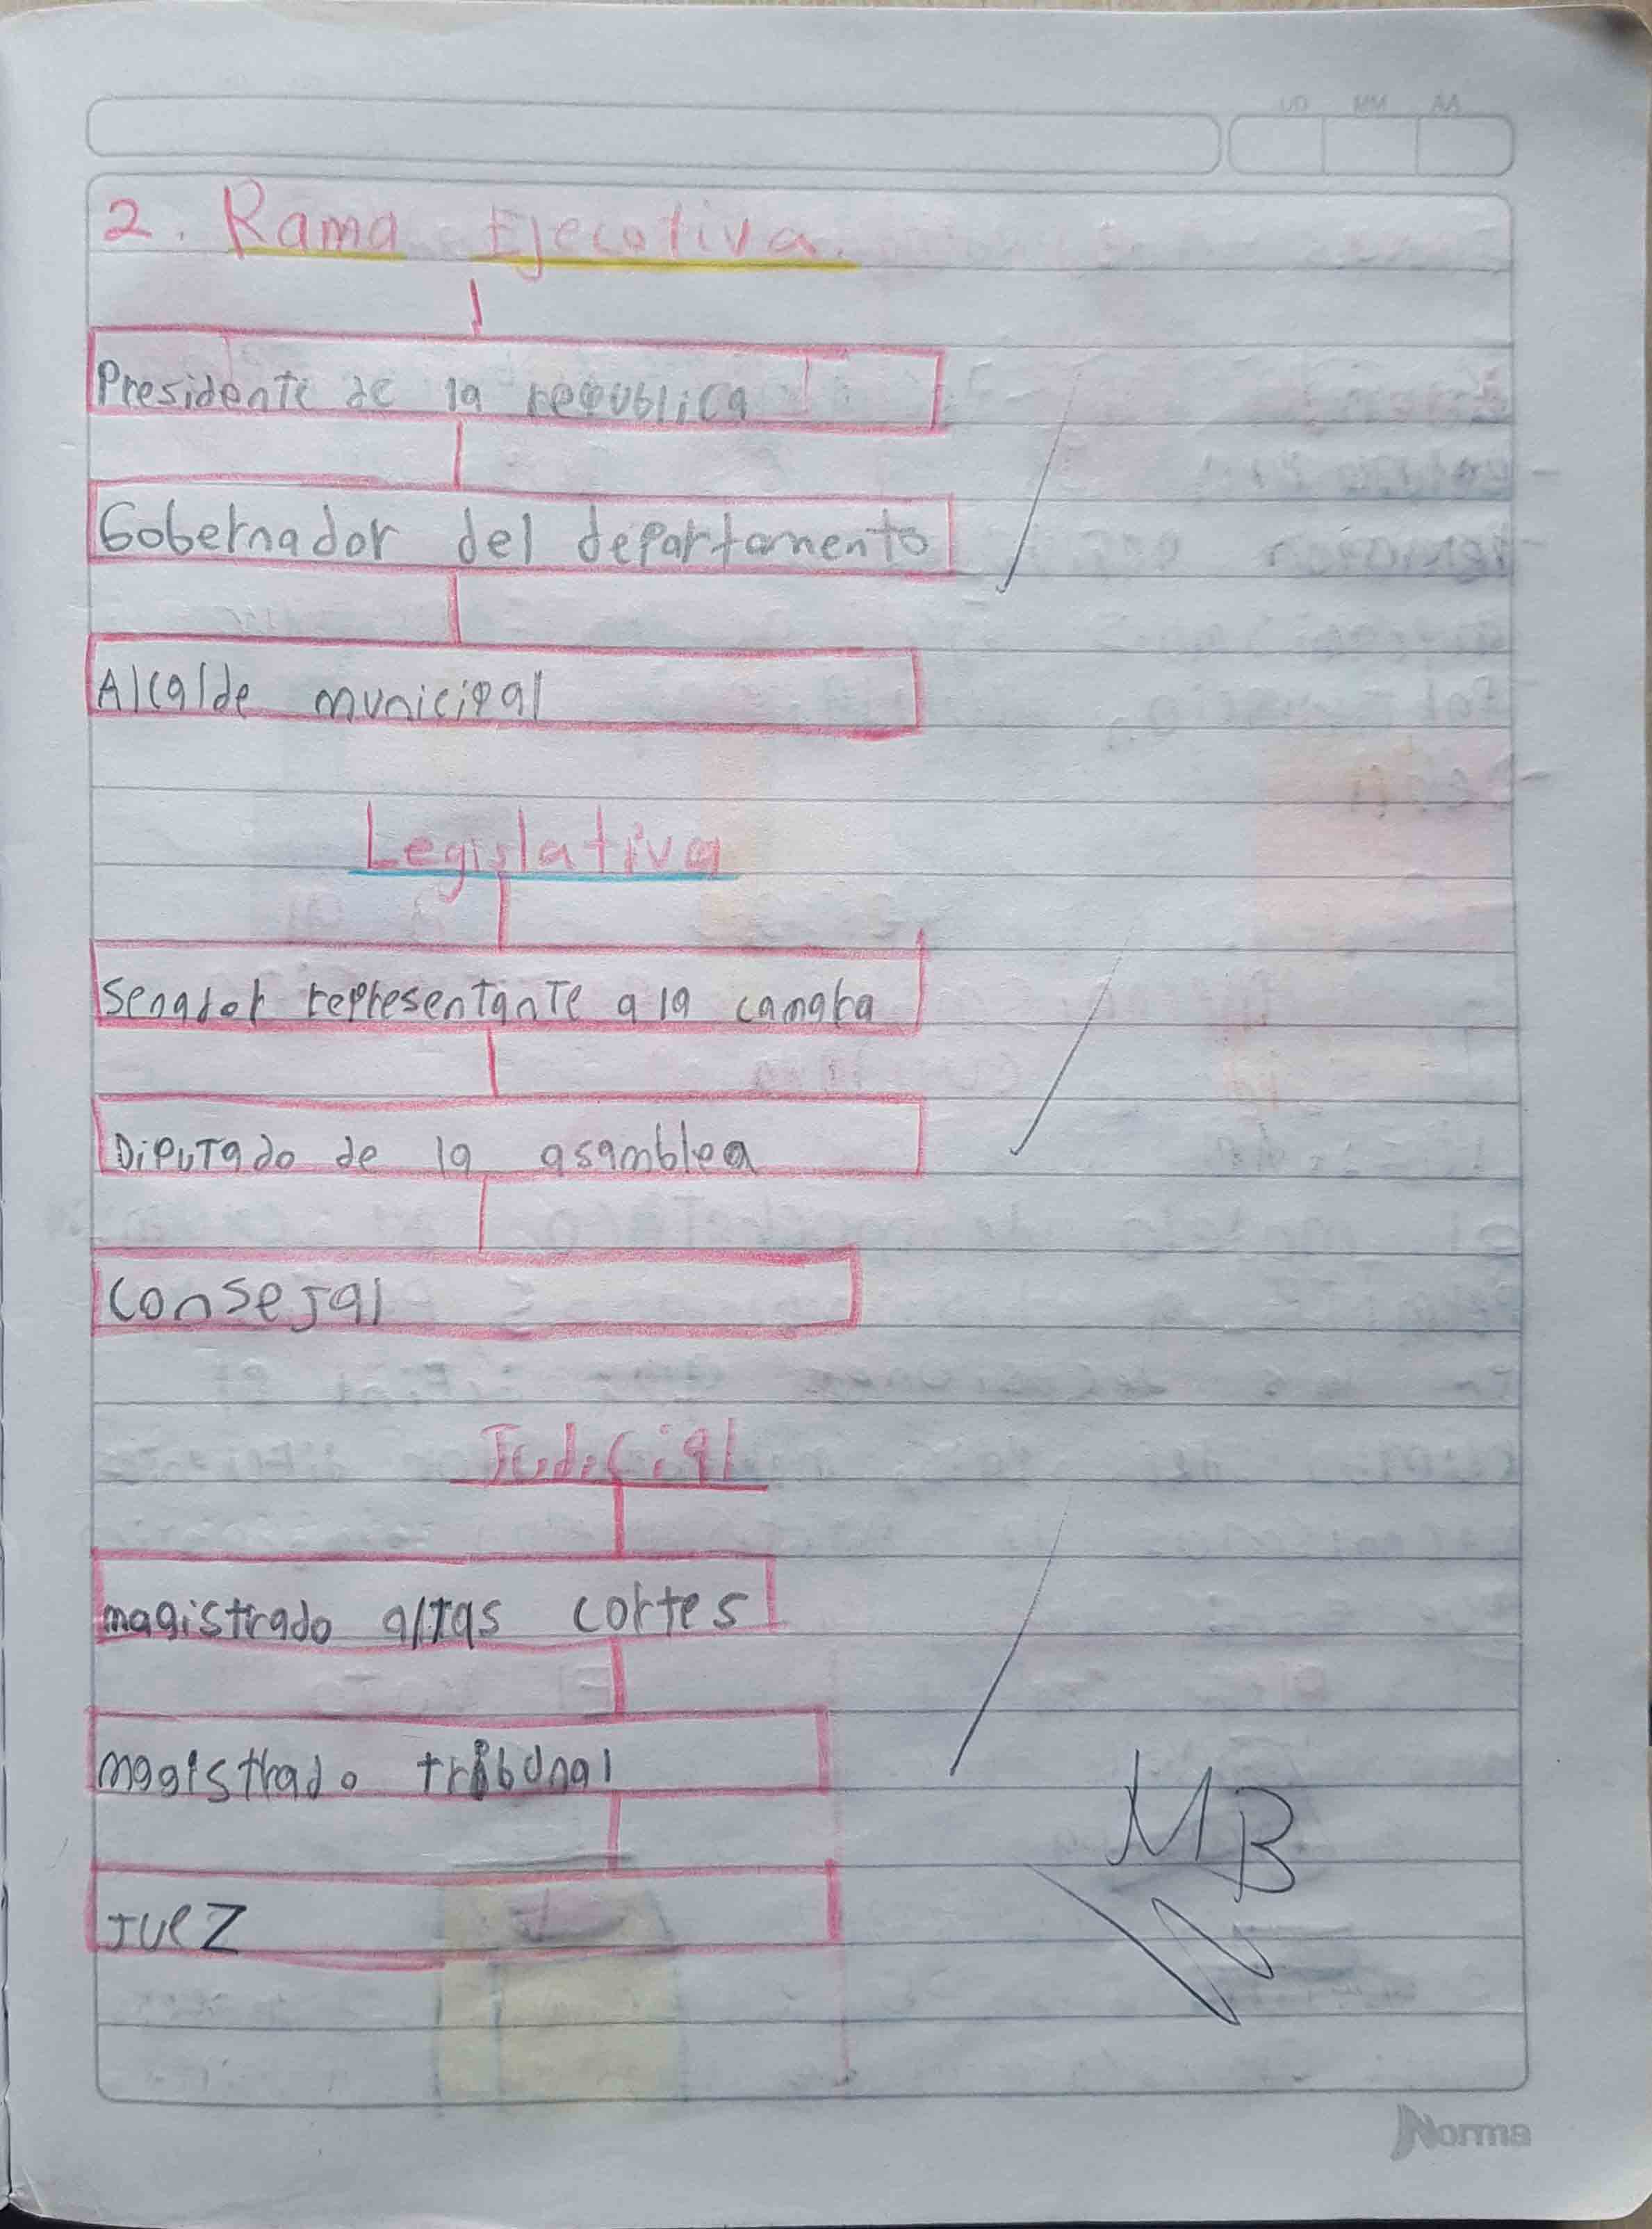 UD MM AA
2. Rama Ejecotiva.
Presidente de la republica
Gobernador del departamento
Alcalde municipal
Legislativa
Senador representante a la camara
Diputado de la asamblea
Consejal
Judicial
magistrado altas cortes
magistrado tribunal
Juez
MB
Norma